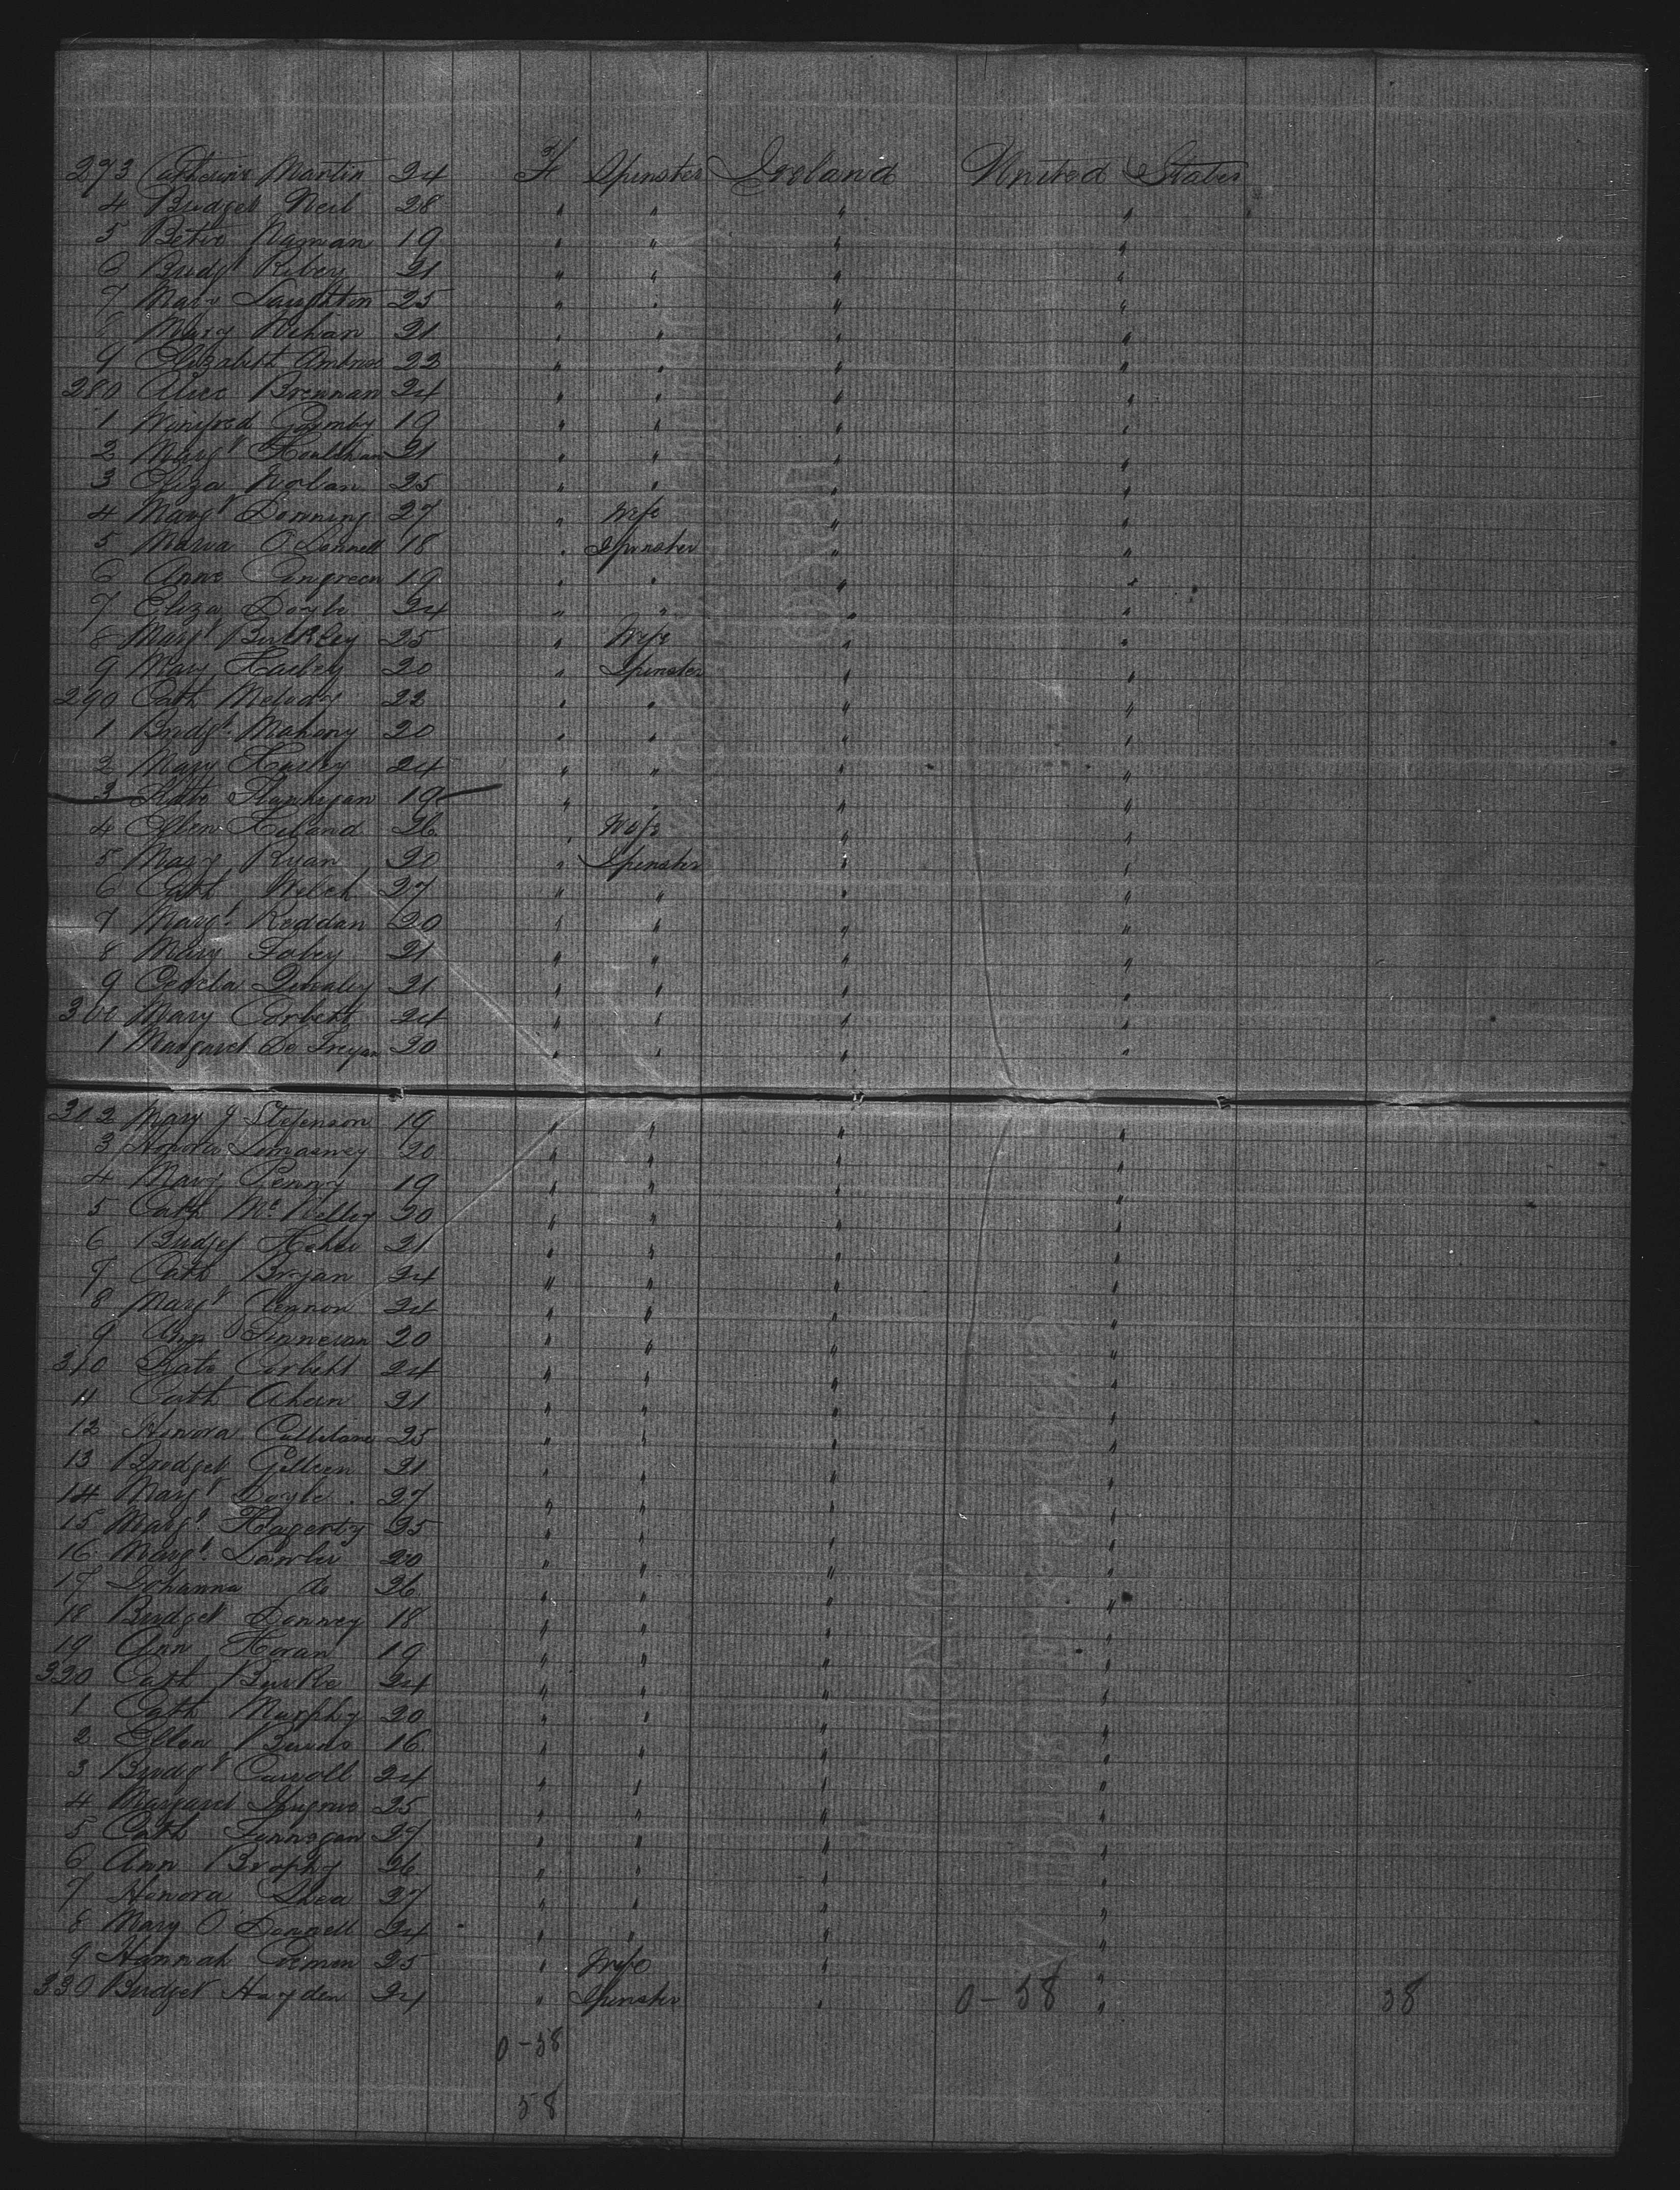 273 Catherine Martin 24 F Spinster Ireland United States
4 Bridget Neil 28 " " " "
5 19 " " " "
6 Bridgt Riley 21 " " " "
7 Mary Laughton 25 " " " "
8 Mary Wihan 21 " " " "
9 Elizabeth Ambrose 22 " " " "
280 Alice Brennan 24 " " " "
1 Winifred 19 " " " "
2 Margt Houlihan 21 " " " "
3 Eliza Nolan 25 " " " "
4 Margt Downing 27 " Wife " "
5 Maria O'Donnell 18 " Spinster " "
6 Anne Congreen 19 " " " "
7 Eliza Doyle 24 " " " "
8 Margt Buckley 25 " Wife " "
9 Mary Harley 20 " Spinster " "
290 Cath Melody 22 " " " "
1 Bridgt. Mahony 20 " " " "
2 Mary Harley 24 " " " "
3 Kate Flannigan 19 " " " "
4 Ellen Hiland 26 " Wife " "
5 Mary Ryan 20 " Spinster " "
6 Cath Welch 27 " " " "
7 Margt. Reddan 20 " " " "
8 Mary Fahey 21 " " " "
9 21 " " " "
300 Mary Corbett 24 " " " "
1 Margaret 20 " " " "
302 Mary J Stefenson 19 " " " "
3 Honora Lomasney 20 " " " "
4 Mary Penny 19 " " " "
5 Cath Mc Kelley 20 " " " "
6 Bridget 21 " " " "
7 Cath Bryan 24 " " " "
8 Margt Lennon 24 " " " "
9 Ann Finnevan 20 " " " "
310 Kate Corbett 24 " " " "
11 Cath Ahern 21 " " " "
12 Honora 25 " " " "
13 Bridget Gilleen 21 " " " "
14 Margt Doyle 27 " " " "
15 Margt. Hagerty 25 " " " "
16 Margt. Lawler 20 " " " "
17 Johanna do 26 " " " "
18 Bridget Donney 18 " " " "
19 Ann Horan 19 " " " "
320 Cath Burke 24 " " " "
1 Cath Murphy 20 " " " "
2 Ellen Burns 16 " " " "
3 Bridgt Carroll 24 " " " "
4 Margaret 25 " " " "
5 Cath Finnegan 27 " " " "
6 Ann Brophy 26 " " " "
7 Honora Shea 27 " " " "
8 Mary O'Donnell 24 " " " "
9 Hannah 25 " Wife " "
330 Bridget Hayden 24 " Spinster " 0-58 " 58
0-58
58